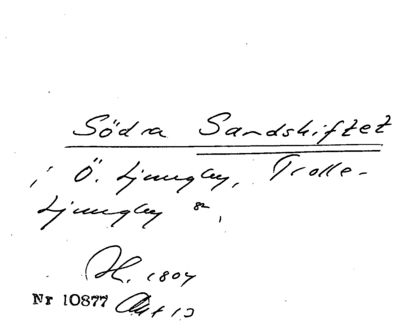 Södra Sandskiftet
i Ö. Ljungby, Trolle-
Ljungby sn,
H. 1804
Nr 10877 Akt 13